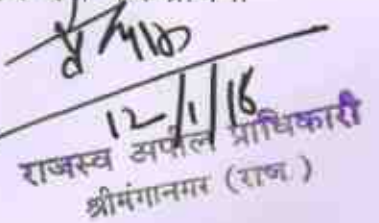 12/1/16
राजस्व अपील प्राधिकारी
श्रीगंगानगर (राज.)